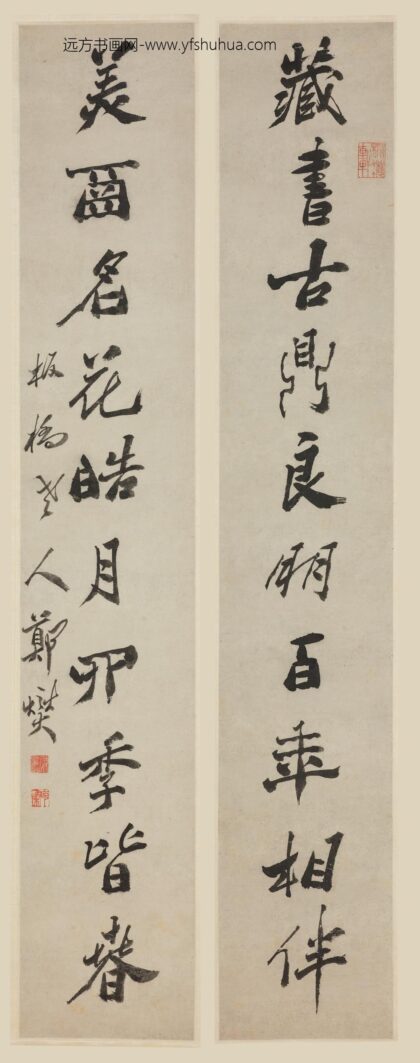 远方书画网-www.yfshuhua.com
藏書古鼎良朋百年相伴
美名花皓月四季皆春
板橋老人鄭燮